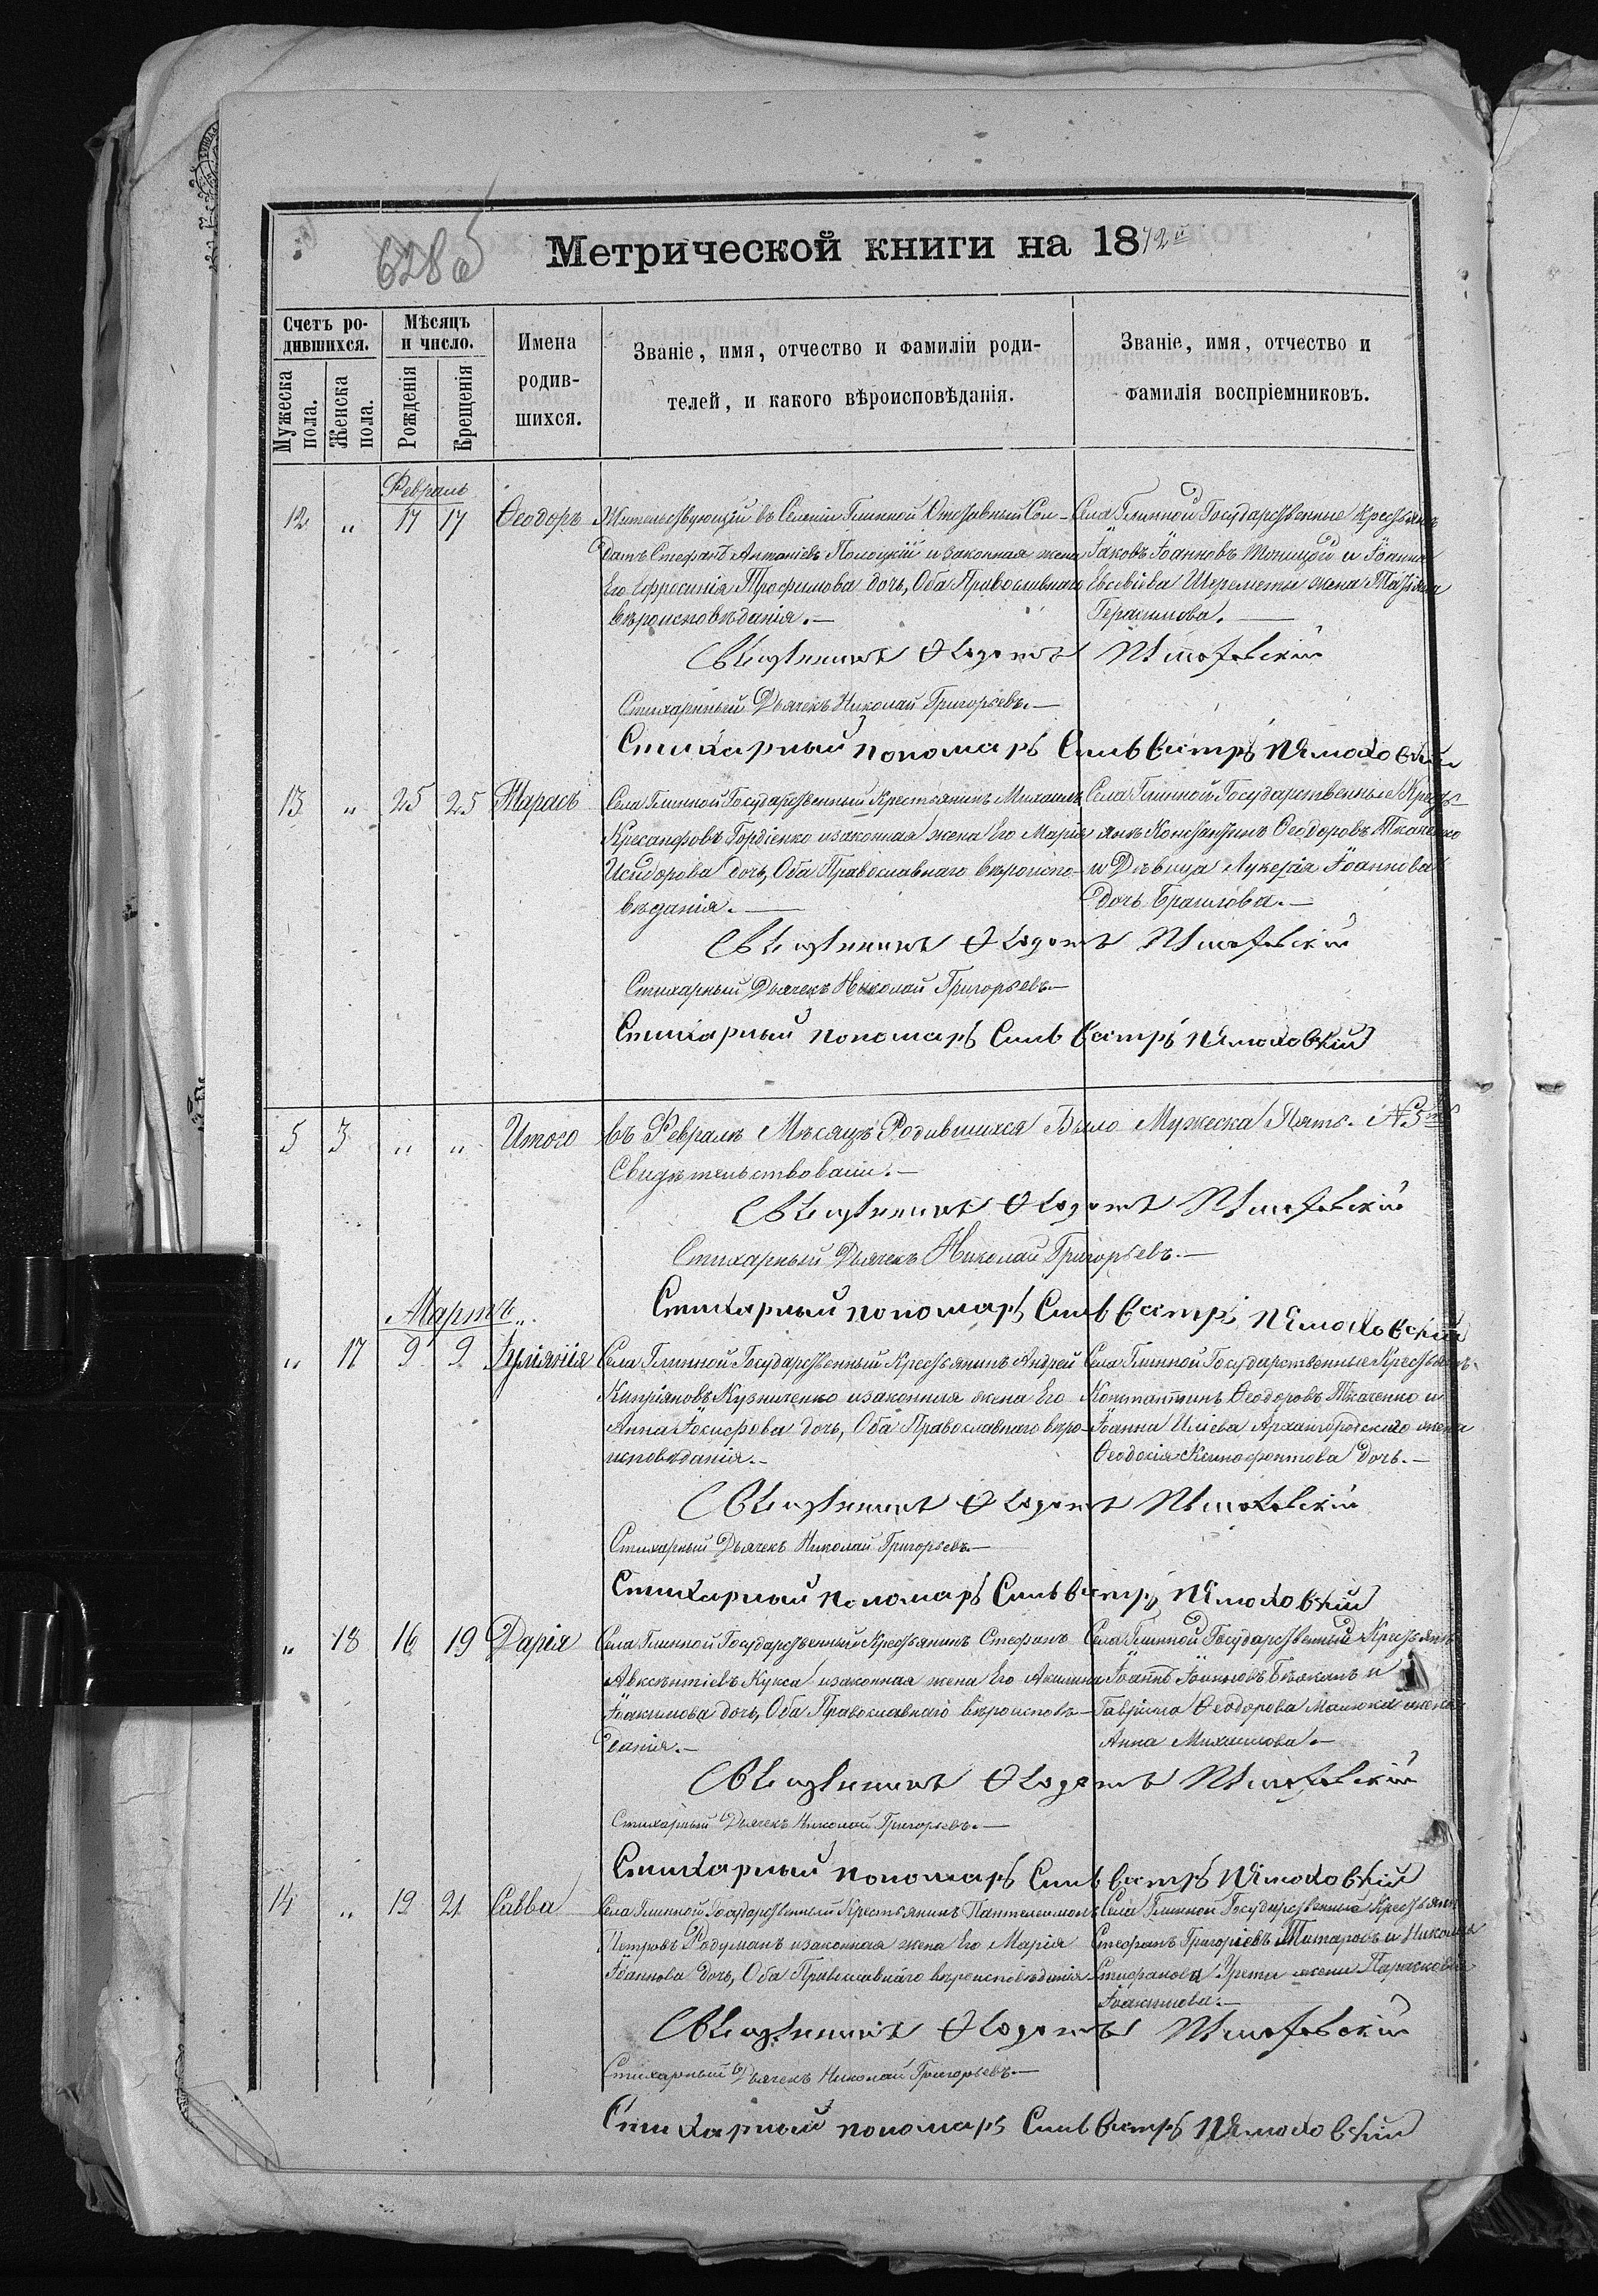 628 об
Метрической книги на 1872й
Счетъ ро-
дившихся.
Мѣсяцъ
и число.
Имена
родив-
шихся.
Званіе, имя, отчество и фамиліи роди-
телей, и какого вѣроисповѣданія.
Званіе, имя, отчество и
фамилія воспріемниковъ.
Мужеска
пола.
Женска
пола.
Рожденія
Крещенія
Февраль
12 „ 17 17 Ѳеодоръ Жительствующій въ Селеніи Глинной Отставный Сол-
датъ Стефанъ Антоніевъ Полоцкій и законная жена
Его Ефросинія Трофимова дочь, Оба Православнаго
вѣроисповѣданія.—
Села Глинной Государственные Крестьянъ
Іаковъ Іоанновъ и Іоанна
Евсевіева Шереметы жена Татіана
Герасимова.—
Священникъ Ѳеодотъ
Стихарный Дьячекъ Николай Григорьевъ.—
Стихарный пономарь Сильвестръ
13 „ 25 25 Тарасъ Села Глинной Государственный Крестьянинъ Михаилъ
Хрисанфовъ Гордіенко и законная жена Его Марія
Исидорова дочь, Оба Православнаго вѣроиспо-
вѣданія.—
Села Глинной Государственные Кресть-
янъ Константинъ Ѳеодоровъ Ткаченко
и Дѣвица Лукерія Іоаннова
дочь Брашова.—
Священникъ Ѳеодотъ
Стихарный Дьячекъ Николай Григорьевъ.—
Стихарный пономарь Сильвестръ
5 3 „ „ Итого въ Февралѣ Мѣсяцѣ Родившихся Было Мужеска Пять.
Свидѣтельствовали.—
Священникъ Ѳеодотъ
Стихарный Дьячекъ Николай Григорьевъ.—
Стихарный пономарь Сильвестръ
Мартъ
„ 17 9 9 Іуліанія Села Глинной Государственный Крестьянинъ Андрей
Кипріяновъ Кузниченко и законная жена Его
Анна Іосифова дочь, Оба Православнаго вѣро-
исповѣданія.—
Села Глинной Государственные Крестьянъ-
Константинъ Ѳеодоровъ Ткаченко и
Іоанна Иліева Архангородскаго жена
Ѳеодосія Ксенофонтова дочь.—
Священникъ Ѳеодотъ
Стихарный Дьячекъ Николай Григорьевъ.—
Стихарный пономарь Сильвестръ
„ 18 16 19 Дарія Села Глинной Государственный Крестьянинъ Стефанъ
Авксентіевъ Кукса и законная жена Его Акилина
Іоакимова дочь, Оба Православнаго вѣроисповѣ-
данія.—
Села Глинной Государственный Крестьянъ
Іоаннъ Іоанновъ и
Гавріила Ѳеодорова жена
Анна Михаилова.—
Священникъ Ѳеодотъ
Стихарный Дьячекъ Николай Григорьевъ.—
Стихарный пономарь Сильвестръ
14 „ 19 21 Савва Села Глинной Государственный Крестьянинъ Пантелеимонъ
Петровъ Радуманъ и законная жена Его Марія
Іоаннова дочь, Оба Православнаго вѣроисповѣданія
Села Глинной Государственный Крестьян
Стефанъ Григоріевъ Титаровъ и Николая
Стефанова жена Параскева
Іоакимова.—
Священникъ Ѳеодотъ
Стихарный Дьячекъ Николай Григорьевъ.—
Стихарный пономарь Сильвестръ